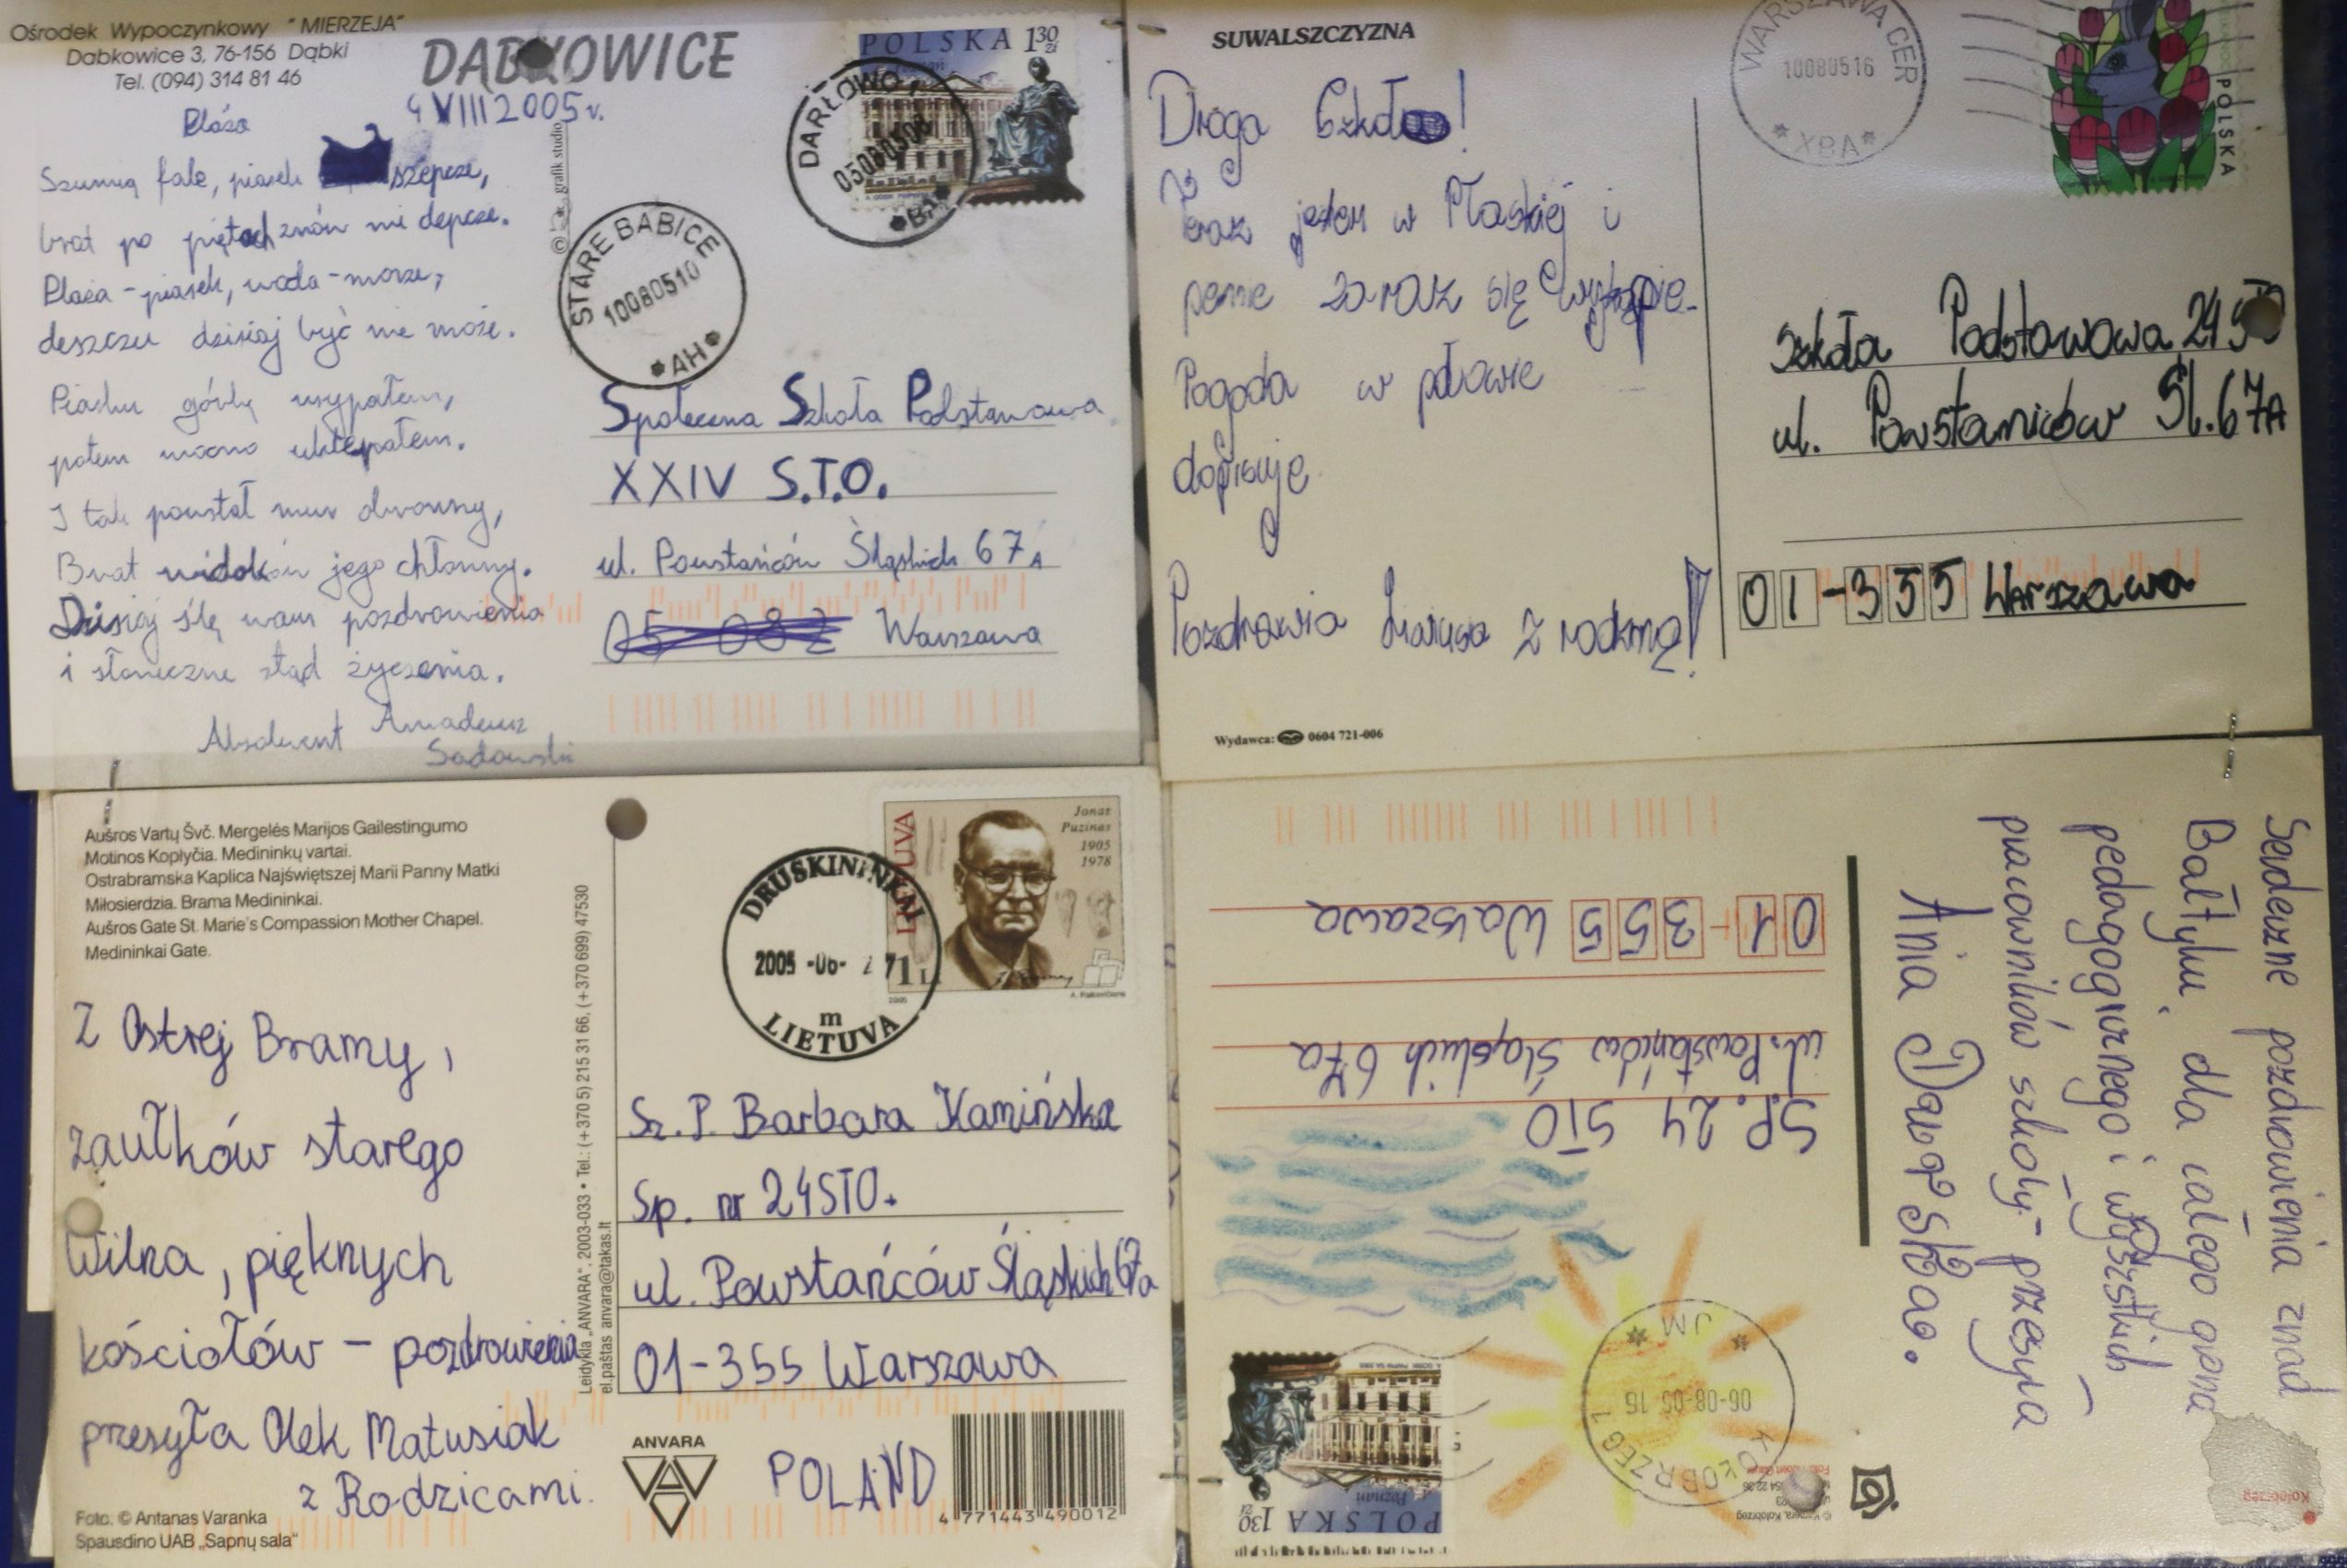 Ośrodek Wypoczynkowy "MIERZEJA"
Dabkowice 3, 76-156 Dąbki
Tel. (094) 314 81 46
DĄBKOWICE
4 VIII 2005 r.
Plaża
Szumią fale, piasek szepcze,
brat po piętach znów mi depcze.
Plaża - piasek, woda - morze,
deszczu dzisiaj być nie może.
Piasku górkę usypałem,
potem mocno uklepałem.
I tak powstał mur obronny,
Brat widoków jego chłonny.
Dzisiaj ślę wam pozdrowienia
i słoneczne stąd życzenia.
Absolwent Amadeusz
Sadowski
grafik studio
POLSKA 130 zł
DARŁOWO 1
STARE BABICE
10080510
*AH*
Społeczna Szkoła Podstawowa
XXIV S.T.O.
ul. Powstańców Śląskich 67A
05 082 Warszawa
SUWALSZCZYZNA
Droga Szkoło!
Teraz jestem w Płaskiej i
pewnie zaraz się wykąpie.
Pogoda w połowie
dopisuje.
Pozdrawia z rodziną!
Wydawca: 0604 721-006
WARSZAWA CER
10080516
*XBA*
POLSKA
Szkoła Podstawowa 24
ul. Powstańców Śl. 67A
01-355 Warszawa
Aušros Vartų Švč. Mergelės Marijos Gailestingumo
Motinos Koplyčia. Medininkų vartai.
Ostrabramska Kaplica Najświętszej Marii Panny Matki
Miłosierdzia. Brama Medininkai.
Aušros Gate St. Marie's Compassion Mother Chapel.
Medininkai Gate.
Z Ostrej Bramy,
zaułków starego
Wilna, pięknych
kościołów - pozdrowienia
przesyła Olek Matusiak
z Rodzicami.
Foto. © Antanas Varanka
Spausdino UAB „Sapnų sala“
Leidykla „ANVARA“, 2003-033 • Tel.: (+370 5) 215 31 66, (+370 699) 47530
el.paštas anvara@takas.lt
Jonas
Puzinas
1905
1978
LIETUVA
1 Lt
2005
DRUSKININKAI
2005 -06-
m
LIETUVA
Sz. P. Barbara Kamińska
Sp. nr 24STO.
ul. Powstańców Śląskich 67a
01-355 Warszawa
ANVARA
POLAND
4 771443 490012
Serdeczne pozdrowienia znad
Bałtyku dla całego grona
pedagogicznego i wszystkich
pracowników szkoły przesyła
Ania
SP. 24 STO
ul. Powstańców Śląskich 67a
01-355 Warszawa
POLSKA 130 zł
Poznań
KOŁOBRZEG 1
06-08-05 15
* JM *
Kołobrzeg